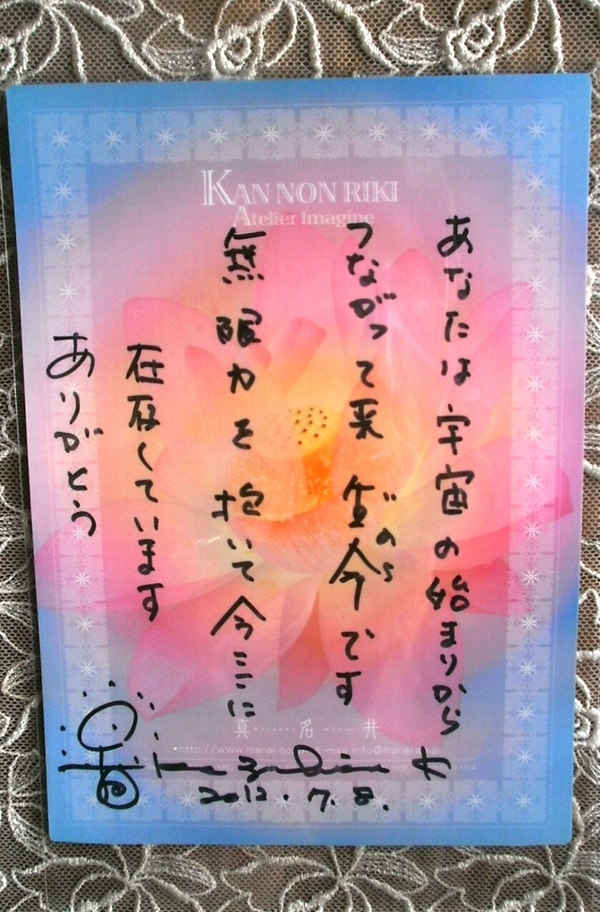 KAN NON RIKI
Atelier Imagine
あなたは宇宙の始まりから
つながって来た今です
無限力を抱いて今ここに
在存しています
ありがとう
真名井
http://www.manai.co
E-mail info@manai.
2012.7.8.